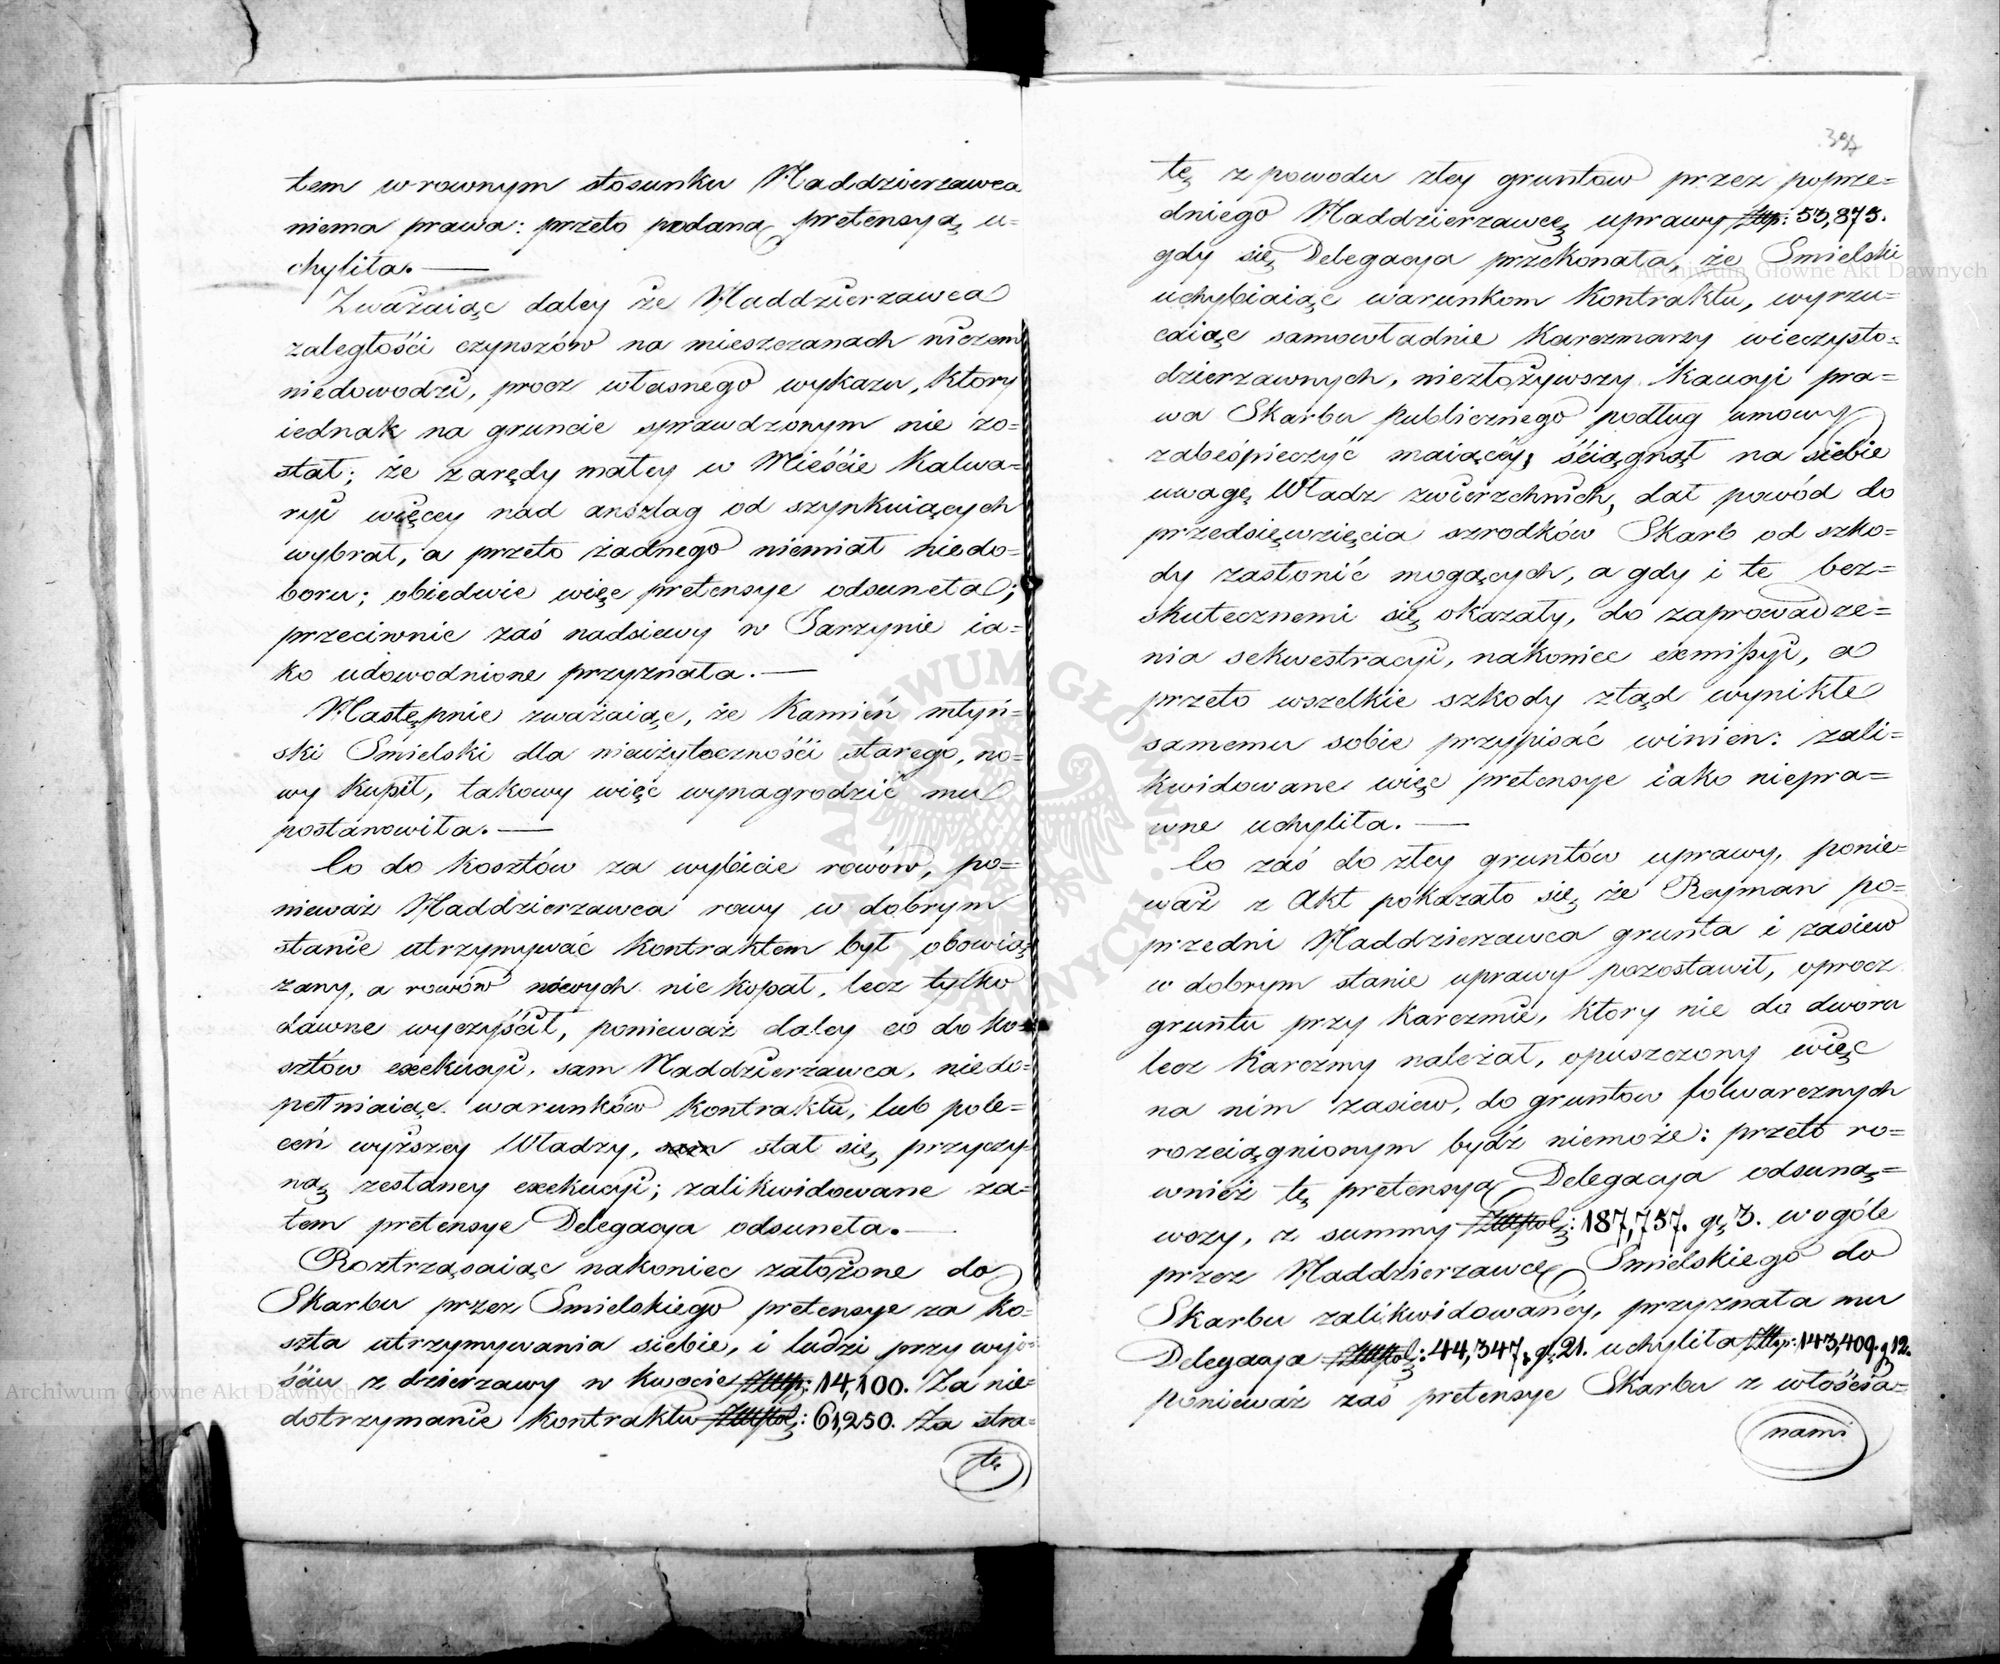 tem w rownym stosunku Naddzierzawca
niema prawa: przeto podaną pretensyą u=
chyliła. —
Zważaiąc daley że Naddzierzawca
zaległości czynszów na mieszczanach niczem
niedowodzi, procz własnego wykazu, ktory
iednak na gruncie sprawdzonym nie zo=
stał; że z arędy małey w Mieście Kalwa=
ryi więcey nad anszlag od szynkuiących
wybrał, a przeto żadnego niemiał niedo=
boru; obiedwie więc pretensye odsuneła;
przeciwnie zaś nadsiewy w Jarzynie ia=
ko udowodnione przyznała. —
Następnie zważaiąc, że Kamień młyń=
ski Smielski dla nieużyteczności starego, no=
wy kupił, takowy więc wynagrodzić mu
postanowiła. —
Co do kosztów za wybicie rowów, po=
nieważ Naddzierzawca rowy w dobrym
stanie utrzymywać kontraktem był obowią
zany, a rowów nowych nie kopał, lecz tylko
dawne wyczyścił, ponieważ daley co do ko=
sztów exekucyi, sam Naddzierzawca, niedo=
pełniaiąc warunków kontraktu, lub pole=
ceń wyższey Władzy, sam stał się przyczy=
ną zesłaney exekucyi; zalikwidowane za=
tem pretensye Delegacya odsuneła. —
Roztrząsaiąc nakoniec założone do
Skarbu przez Smielskiego pretensye za ko=
szta utrzymywania siebie, i ludzi przy wyj=
ściu z dzierzawy w kwocie Złłp: 14,100. Za nie=
dotrzymanie kontraktu Złłpol: 61,250. Za stra=
tę
397
tę z powodu złey gruntow przez poprze=
dniego Naddzierzawcę uprawy Złłp: 53,873.
gdy się Delegacya przekonała, że Smielski
uchybiaiąc warunkom Kontraktu, wyrzu=
caiąc samowładnie Karczmarzy wieczysto=
dzierzawnych, niezłożywszy Kaucyi pra=
wa Skarbu publicznego podług umowy
zabeśpieczyć maiącey, ściągnął na siebie
uwagę Władz zwierzchnich, dał powód do
przedsięwzięcia szrodków Skarb od szko=
dy zasłonić mogących, a gdy i te bez=
skutecznemi się okazały, do zaprowadze=
nia sekwestracyi, nakoniec exmissyi, a
przeto wszelkie szkody ztąd wynikłe
samemu sobie przypisać winien: zali=
kwidowane więc pretensye iako niepra=
wne uchyliła. —
Co zaś do złey gruntów uprawy, ponie=
waż z Akt pokazało się że Rejman po=
przedni Naddzierzawca grunta i zasiew
w dobrym stanie uprawy pozostawił, oprocz
gruntu przy Karczmie, ktory nie do dworu
lecz Karczmy należał, opuszczony więc
na nim zasiew, do gruntow folwarcznych
rozciągnionym bydź niemoże: przeto ro=
wnież tę pretensyą Delegacya odsuną=
wszy, z summy Złłpol: 187,757. gr. 3. wogóle
przez Naddzierzawcę Smielskiego do
Skarbu zalikwidowaney, przyznała mu
Delegacya Złłpol: 44,347. gr. 21. uchyliła Złłp: 143,409. g 12.
ponieważ zaś pretensye Skarbu z włościa=
nami
Archiwum Główne Akt Dawnych
Archiwum Główne Akt Dawnych
ARCHIWUM GŁÓWNE AKT DAWNYCH